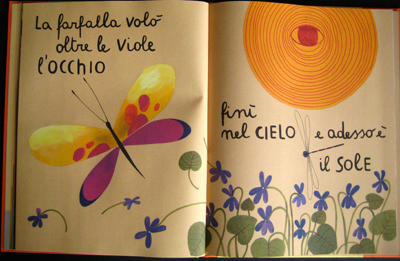 La farfalla volò
oltre le viole
l'OCCHIO
finì
nel CIELO e adesso è
il SOLE